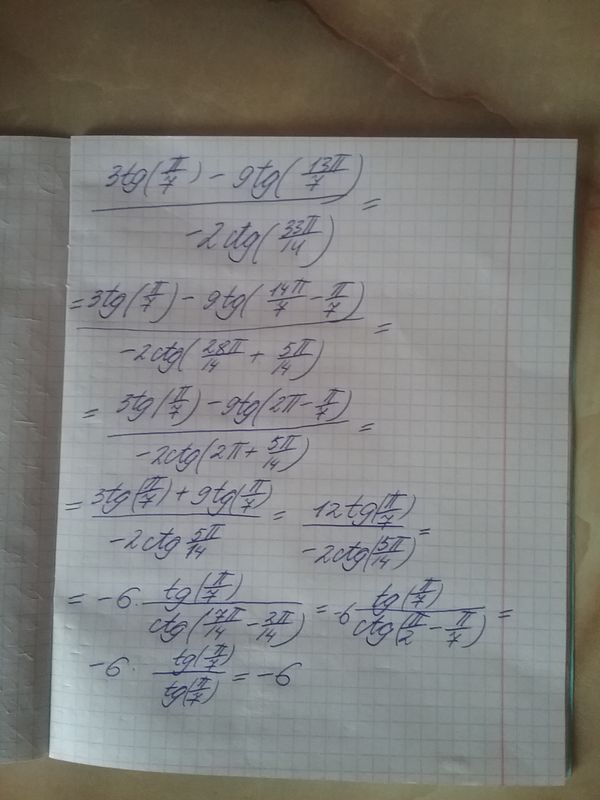 (3tg(π/7) - 9tg(13π/7)) / (-2ctg(33π/14)) =
= (3tg(π/7) - 9tg(14π/7 - π/7)) / (-2ctg(28π/14 + 5π/14)) =
= (3tg(π/7) - 9tg(2π - π/7)) / (-2ctg(2π + 5π/14)) =
= (3tg(π/7) + 9tg(π/7)) / (-2ctg 5π/14) = (12tg(π/7)) / (-2ctg(5π/14)) =
= -6 · tg(π/7) / ctg(7π/14 - 2π/14) = -6 tg(π/7) / ctg(π/2 - π/7) =
-6 · tg(π/7) / tg(π/7) = -6